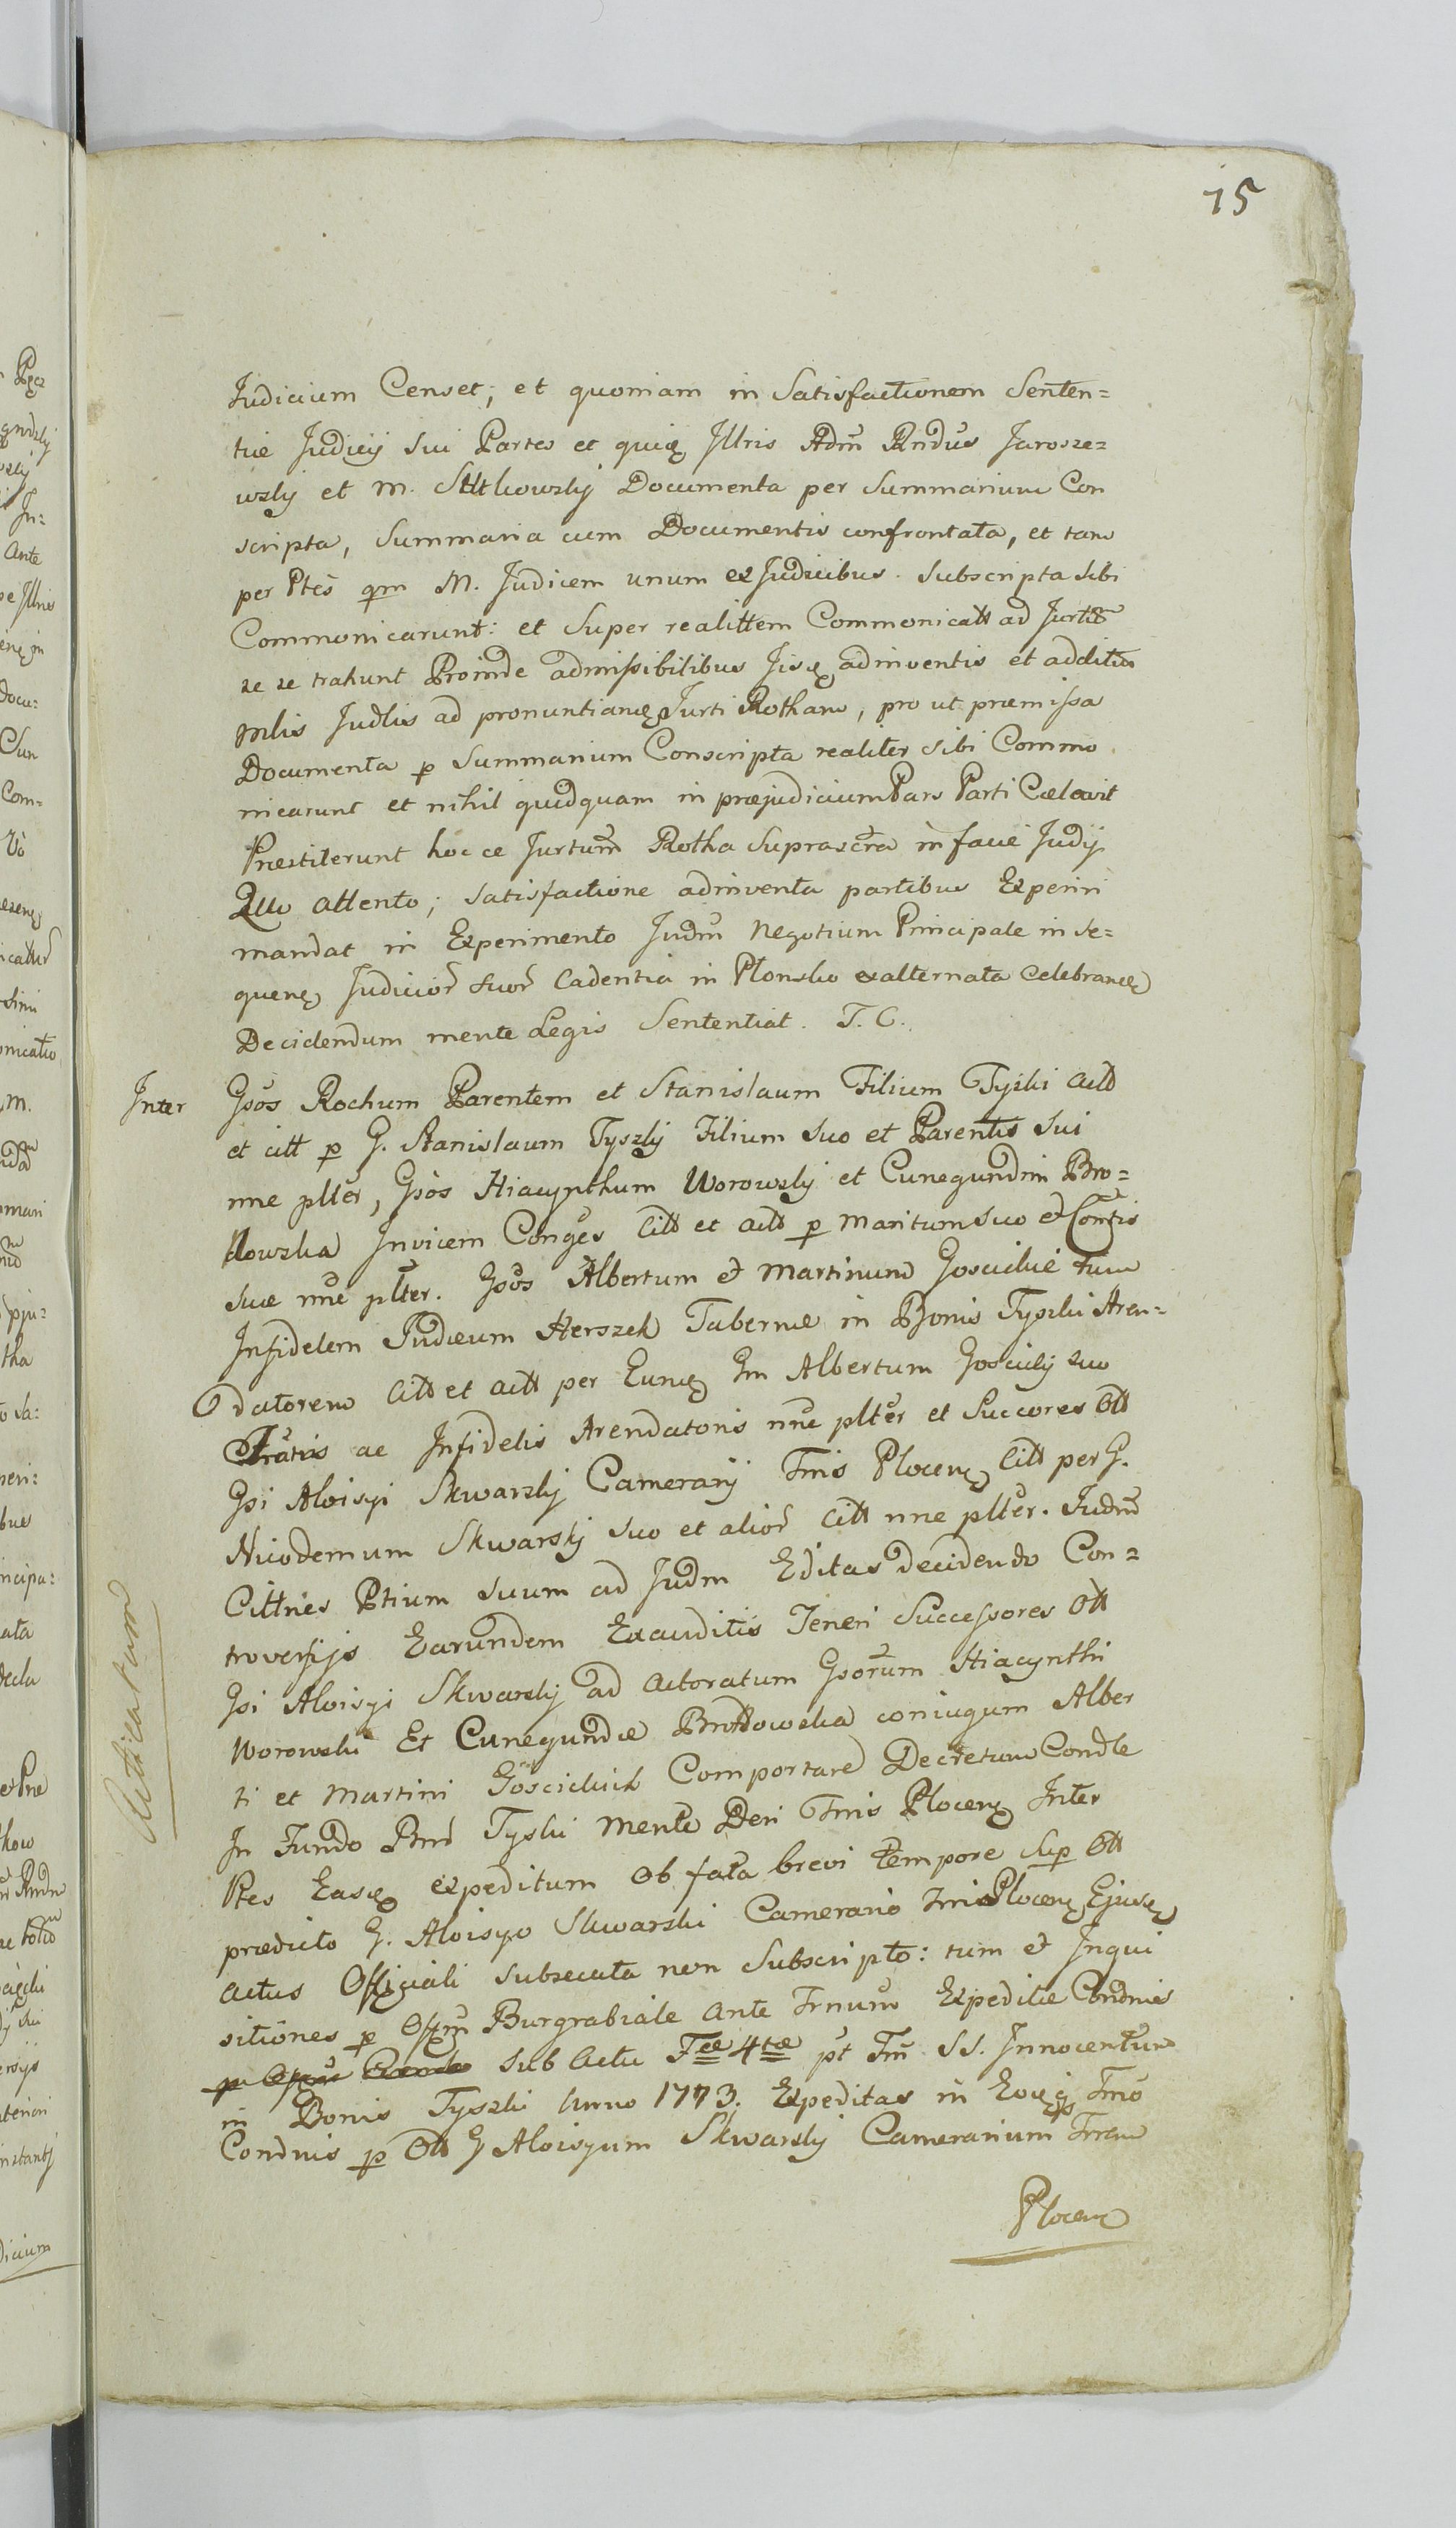 15
Judicium Censet; et quoniam in Satisfactionem Senten=
tiæ Judicij sui Partes et quidę Jllris Adm̃ Rndus Jarosze=
wsky et M. Sutkowsky Documenta per Summarium Con
scripta, Summaria cum Documentis confrontata, et tam
per Ptes qm M. Judicem unum ex Judicibus subscripta sibi
Commonicarunt: et super realittem Commonicatt ad Jurttũ
se se trahunt Proinde admissibilibus Jisdę adinventis et additus
Mlis Judlis ad pronuntiandę Jurti Rotham, pro ut præmissa
Documenta p Summarium Conscripta realiter sibi Commo
nicarunt et nihil quidquam in præjudicium Pars Parti Cælavit
Præstiterunt hocce Jurtum Rotha suprascra in facie Judij
Quo attento; satisfactione adinventa partibus Experiri
mandat in Experimento Judm Negotium Principale in se=
quenę Judicior suor Cadentia in Plonsko exalternata celebrandę
Decidendum mente Legis Sententiat. T. C.
Inter Gsos Rochum Parentem et Stanislaum Filium Tyski actt
et citt p G. Stanislaum Tyszky Filium suo et Parentis sui
nne plter, Gsos Hiacynthum Worowsky et Cunegundim Bro=
dowska Invicem Conges Citt et actt p Maritum suo et Contis
suæ nne plter. Gsos Albertum et Martinum Goscickie tum
Infidelem Judæum Herszek Tabernæ in Bonis Tyszki Aren=
datorem Citt et actt per Eundę Gm Albertum Goscicky suo
Fratris ac Infidelis Arendatoris nne plter et Succores Ott
Gsi Aloisyi Skwarsky Camerarij Trris Plocenę Citt per G.
Nicodemum Skwarsky suo et alior Citt nne plter. Judm
Cittnes Ptium suum ad Judm Editas decidendo Con=
troversijs Earundem Exauditis Teneri Successores Ott
Gsi Aloisyi Skwarsky ad actoratum Gsorum Hiacynthi
Worowski Et Cunegundæ Brodowska coniugum Alber
ti et Martini Goscickich Comportare Decretum Condle
In Fundo Bnr Tyski Mente Dcri Trris Plocenę Inter
Ptes Easdę expeditum Ob fata brevi tempore Sup Ott
prædicto G. Aloisyo Skwarski Camerario Trris Plocenę Ejusdę
actus Officiali subsecuta non Subscripto: tum et Inqui
sitiones p Offm Burgrabiale ante Trnum Expeditæ Condnis
sub actu Fæ 4tæ pt Fm SS. Innocentum
in Bonis Tyszki Anno 1773. Expeditas in Eodę Trno
Condnis p Ott G Aloisyum Skwarsky Camerarium Trrm
Plocenę